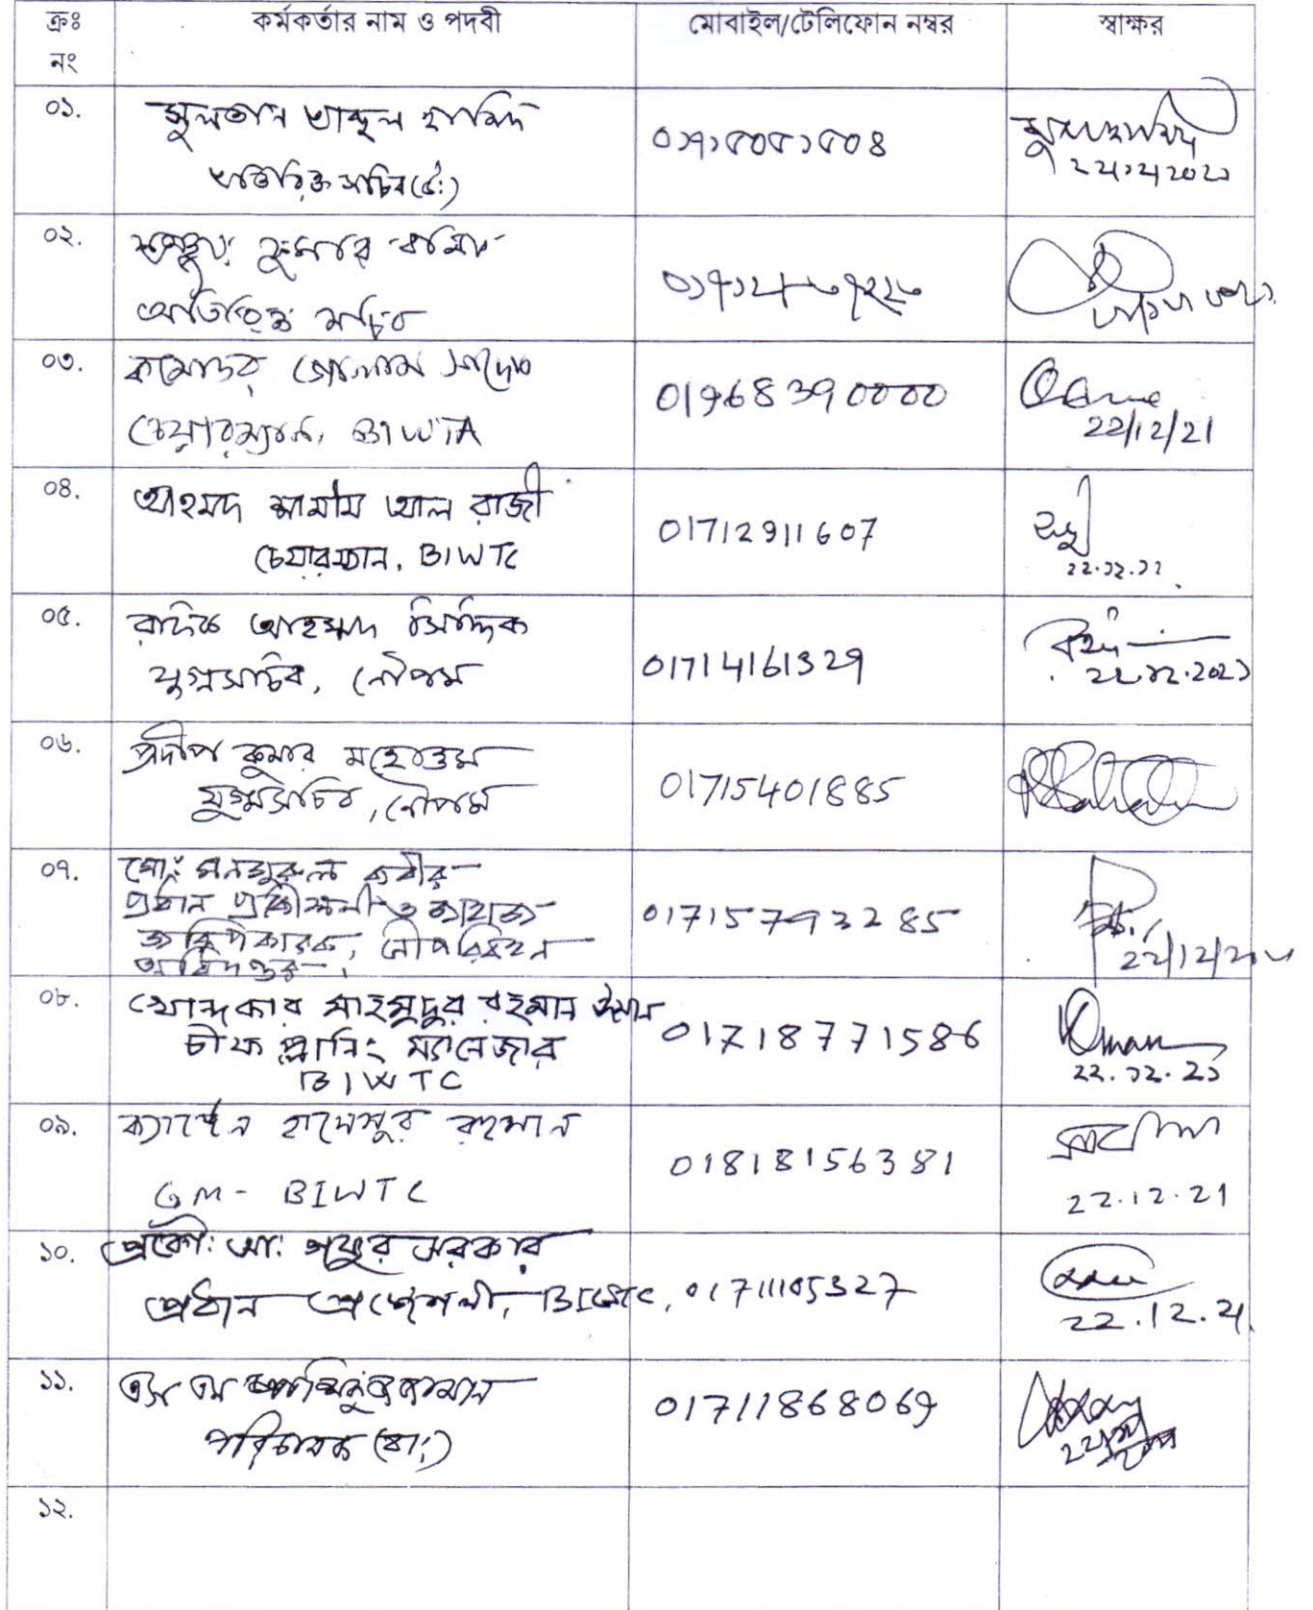 ক্রঃ নং কর্মকর্তার নাম ও পদবী মোবাইল/টেলিফোন নম্বর স্বাক্ষর
০১. সুলতান আব্দুল হামিদ
অতিরিক্ত সচিব ০১৭১৫০৫১৫০৪
২২/১২/২০২১
০২. কুমার
অতিরিক্ত সচিব
০৩. কমোডর গোলাম সাদেক
চেয়ারম্যান, BIWTA 01768390000
22/12/21
০৪. আহমদ শামীম আল রাজী
চেয়ারম্যান, BIWTC 01712911607
২২.১২.২১
০৫. রফিক আহম্মদ সিদ্দিক
যুগ্মসচিব, নৌপম 01714161329
২২.১২.২০২১
০৬. প্রদীপ কুমার মহোত্তম
যুগ্মসচিব, নৌপম 01715401885
০৭. মো: মনজুরুল কবীর
প্রধান প্রকৌশলী ও জাহাজ
জরিপকারক, নৌপরিবহন
অধিদপ্তর 01715793285
22/12/
০৮. খোন্দকার মাহমুদুর রহমান
চীফ প্লানিং ম্যানেজার
BIWTC 01718771586
২২.১২.২১
০৯. ক্যাপ্টেন হাসেমুর রহমান
GM - BIWTC 01818156381
22.12.21
১০. প্রকৌ: আ: গফুর সরকার
প্রধান প্রকৌশলী, BIWTC, 01711105327
22.12.21
১১. এস এম
পরিচালক 01711868069
১২.